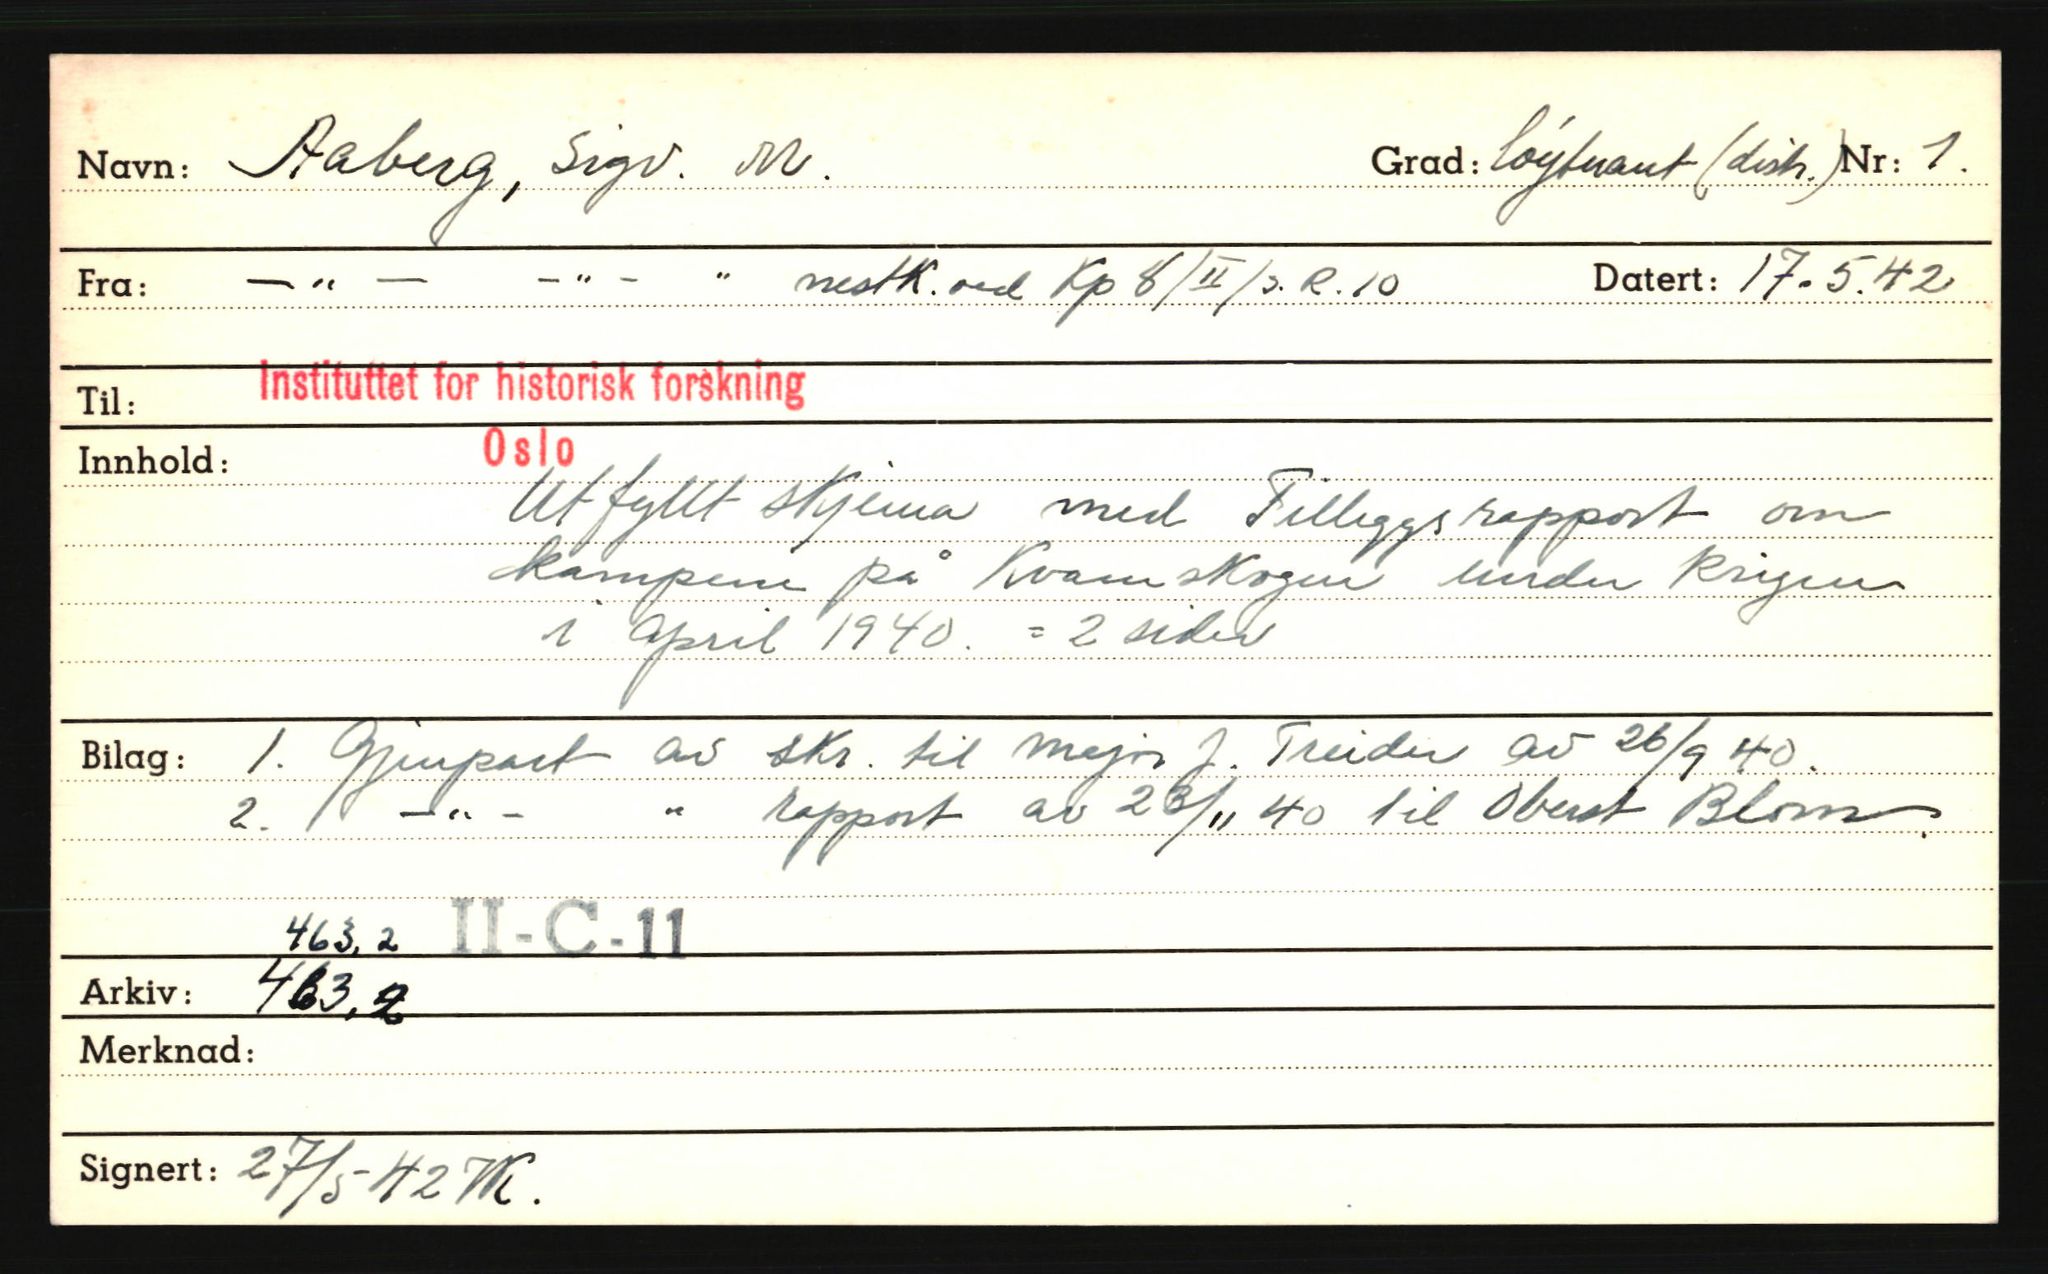 Navn: Aaberg, Sigv. M. Grad: løytnant (distr.) Nr: 1.
Fra: — " — - " - " nestk. ved Kp 8/II/I.R.10 Datert: 17.5.42
Til: Instituttet for historisk forskning
Oslo
Innhold:
Utfyllt skjema med Tilleggsrapport om
kampene på Kvamskogen under krigen
i april 1940. = 2 sider
Bilag: 1. Gjenpart av skr. til major J. Treider av 26/9 40.
2. - " - " rapport av 23/11 40 til Oberst Blom.
463,2 II-C-11
Arkiv: 463,2
Merknad:
Signert: 27/5-42